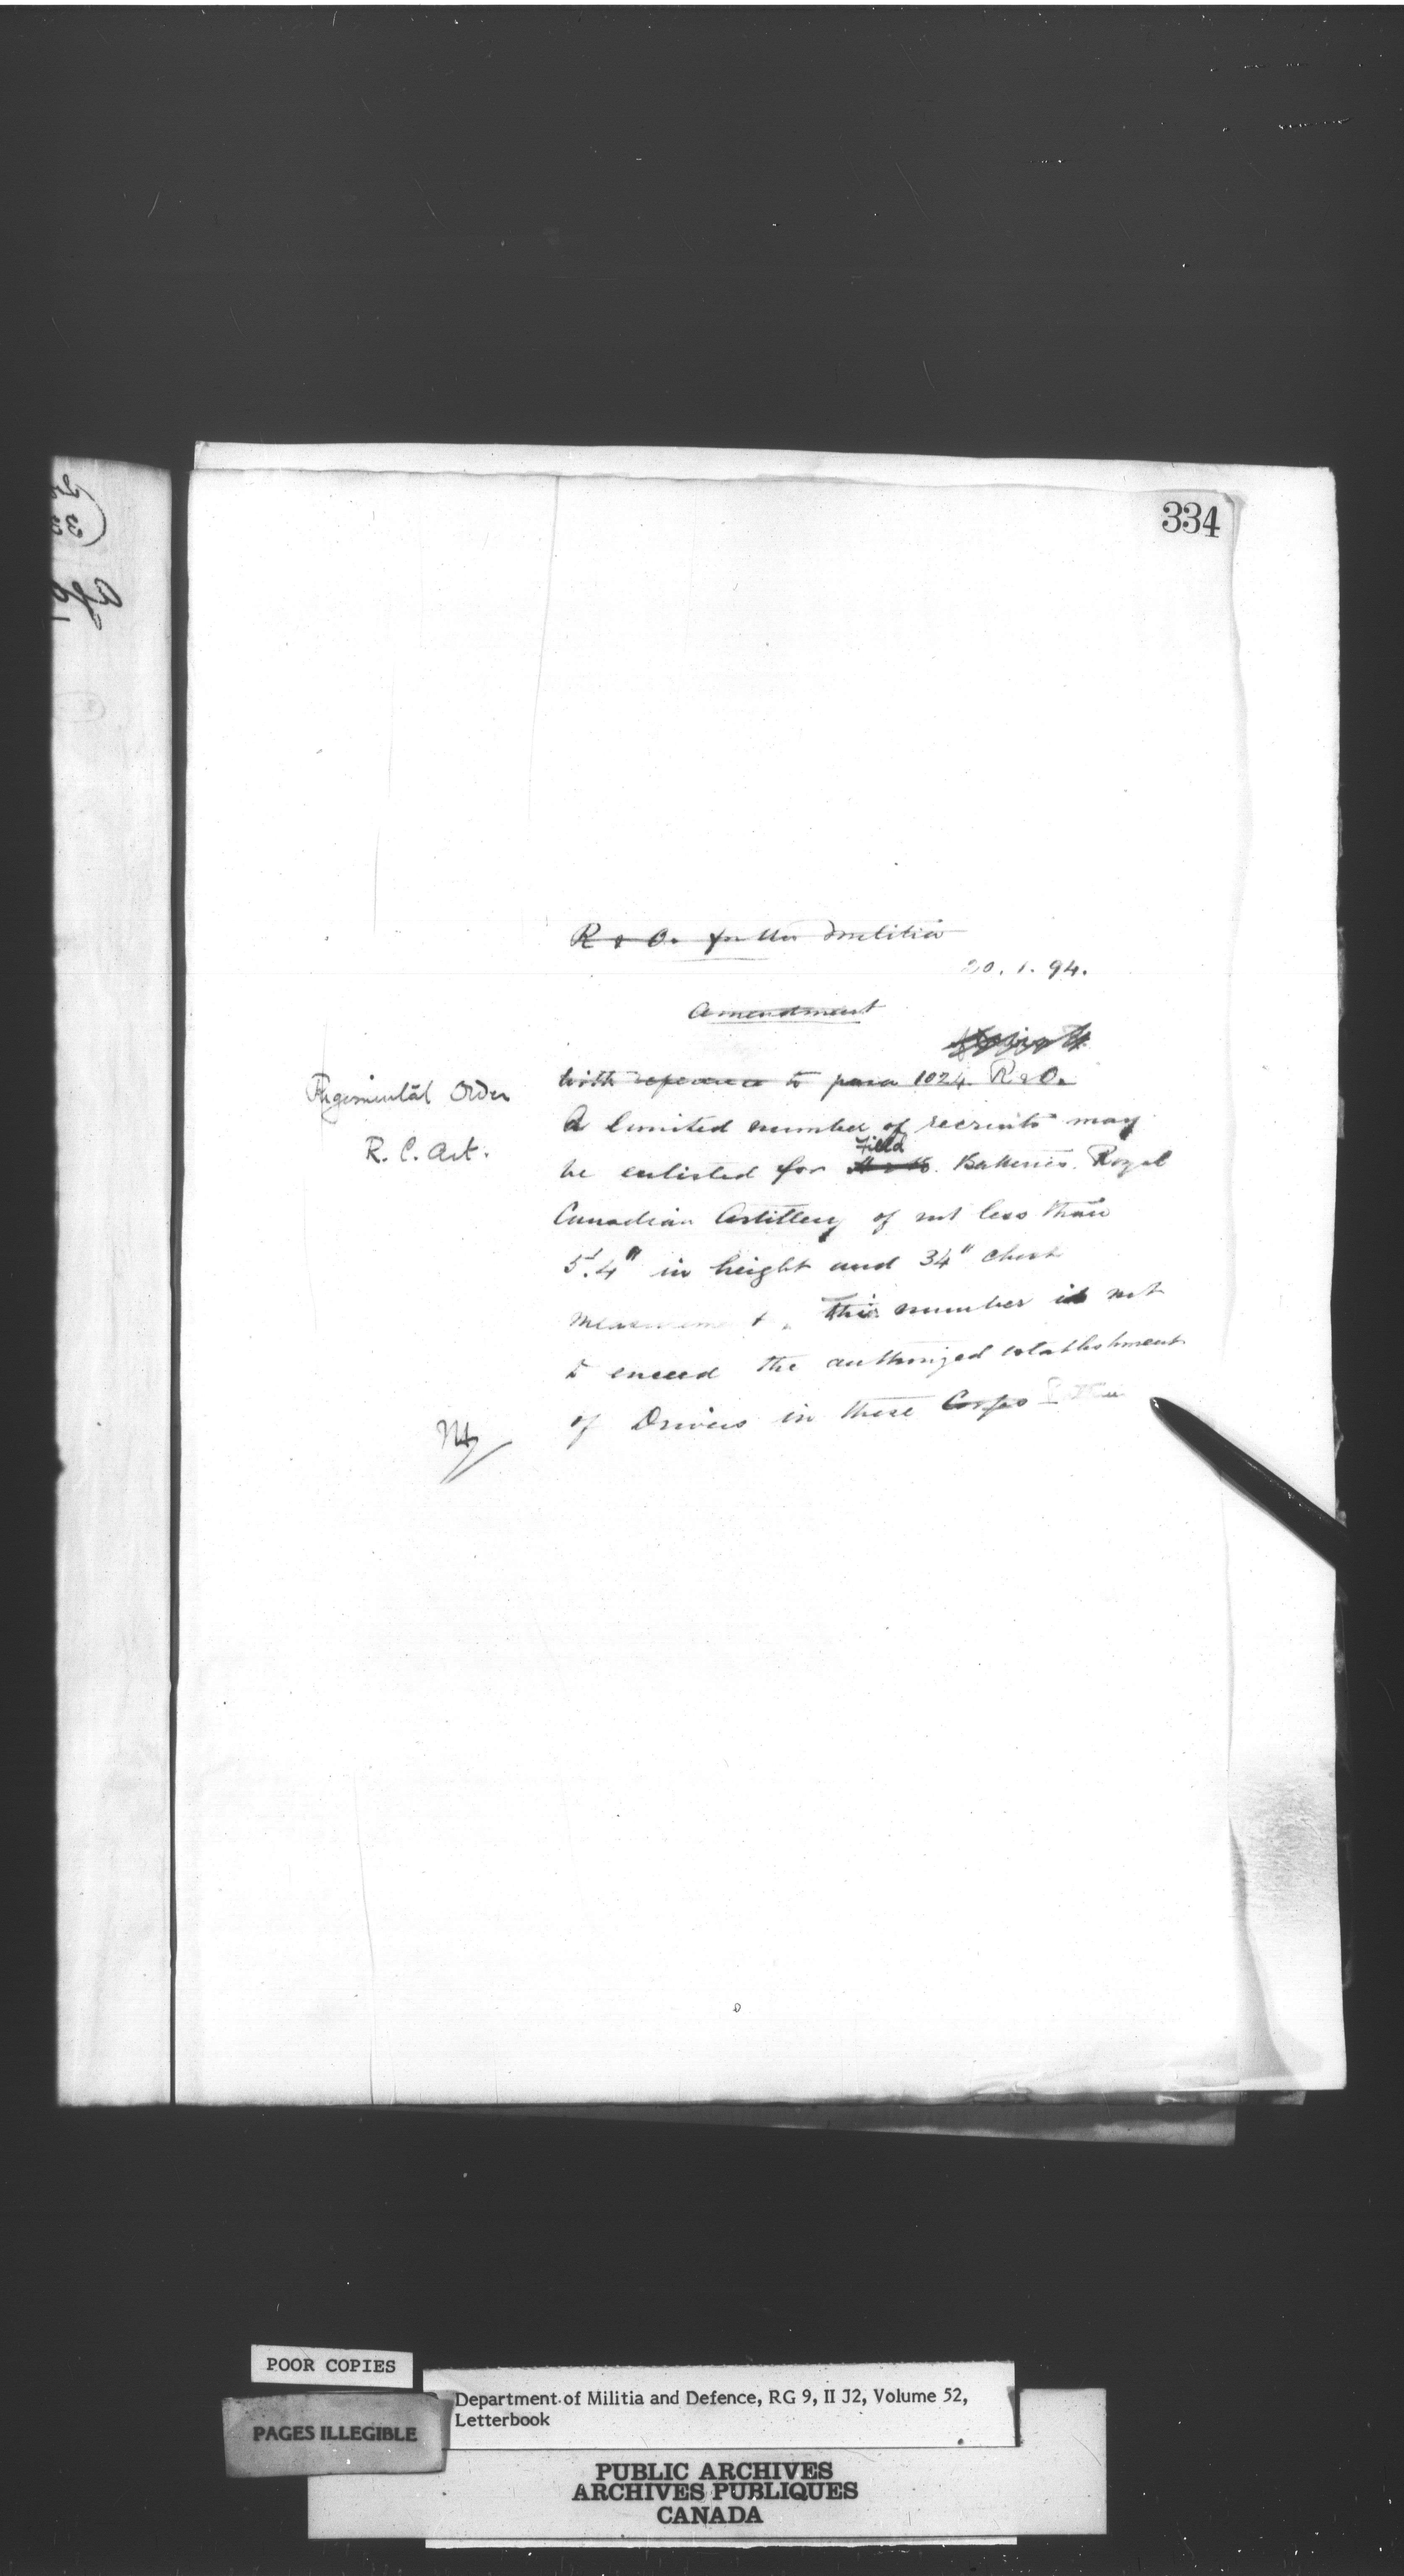 334
R & O. for the Militia
20. 1. 94.
Amendment
With reference to para 1024 R & O.
Regimental Order
R. C. Art.
A limited number of recruits may
Field
be enlisted for Batteries. Royal
Canadian Artillery of not less than
5'.4" in height and 34" chest
measurement. This number is not
to exceed the authorized establishment
of Drivers in these Corps
POOR COPIES
PAGES ILLEGIBLE
Department of Militia and Defence, RG 9, II J2, Volume 52,
Letterbook
PUBLIC ARCHIVES
ARCHIVES PUBLIQUES
CANADA